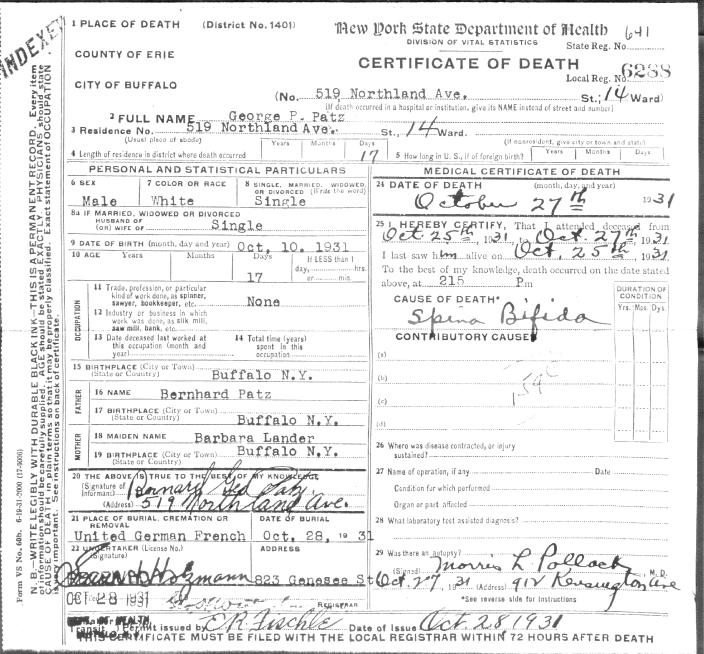 INDEXED
1 PLACE OF DEATH (District No. 1401)
New York State Department of Health 641
DIVISION OF VITAL STATISTICS
State Reg. No.
COUNTY OF ERIE
CERTIFICATE OF DEATH
Local Reg. No. 6288
CITY OF BUFFALO
(No. 519 Northland Ave. St.; 14 Ward)
(If death occurred in a hospital or institution, give its NAME instead of street and number)
2 FULL NAME George P. Patz
3 Residence No. 519 Northland Ave. St., 14 Ward.
(Usual place of abode) (If nonresident, give city or town and state)
4 Length of residence in district where death occurred Years Months Days 17 5 How long in U. S., if of foreign birth? Years Months Days
PERSONAL AND STATISTICAL PARTICULARS
6 SEX Male
7 COLOR OR RACE White
8 SINGLE, MARRIED, WIDOWED OR DIVORCED (Write the word) Single
8a IF MARRIED, WIDOWED OR DIVORCED
HUSBAND OF
(or) WIFE OF Single
9 DATE OF BIRTH (month, day and year) Oct, 10. 1931
10 AGE Years Months Days 17 If LESS than 1 day, hrs. or min.
OCCUPATION
11 Trade, profession, or particular
kind of work done, as spinner,
sawyer, bookkeeper, etc. None
12 Industry or business in which
work was done, as silk mill,
saw mill, bank, etc.
13 Date deceased last worked at
this occupation (month and
year)
14 Total time (years)
spent in this
occupation
15 BIRTHPLACE (City or Town)
(State or Country) Buffalo N.Y.
FATHER
16 NAME Bernhard Patz
17 BIRTHPLACE (City or Town)
(State or Country) Buffalo N.Y.
MOTHER
18 MAIDEN NAME Barbara Lander
19 BIRTHPLACE (City or Town) Buffalo N.Y.
(State or Country)
20 THE ABOVE IS TRUE TO THE BEST OF MY KNOWLEDGE
(Signature of
Informant) Patz
(Address) 519 Northland Ave.
21 PLACE OF BURIAL, CREMATION OR REMOVAL
United German French
DATE OF BURIAL
Oct, 28, 1931
22 UNDERTAKER (License No.)
(Signature)
ADDRESS
823 Genesee St
OCT 28 1931
REGISTRAR
MEDICAL CERTIFICATE OF DEATH
24 DATE OF DEATH (month, day, and year)
October 27th 1931
25 I HEREBY CERTIFY, That I attended deceased from
Oct. 25th, 1931, to Oct. 27th 1931
I last saw him alive on Oct. 25th 1931.
To the best of my knowledge, death occurred on the date stated
above, at 215 Pm
CAUSE OF DEATH*
Spina Bifida
DURATION OF CONDITION
Yrs. Mos. Dys.
CONTRIBUTORY CAUSE
(a)
(b)
(c)
(d)
26 Where was disease contracted, or injury
sustained?
27 Name of operation, if any Date
Condition for which performed
Organ or part affected
28 What laboratory test assisted diagnosis?
29 Was there an autopsy?
(Signed) Morris L Pollack M. D.
Oct. 27, 1931 (Address) 912 Kensington Ave
*See reverse side for instructions
Transit Permit issued by E.R. Fischle Date of Issue Oct. 28 1931
THIS CERTIFICATE MUST BE FILED WITH THE LOCAL REGISTRAR WITHIN 72 HOURS AFTER DEATH
N. B.—WRITE LEGIBLY WITH DURABLE BLACK INK—THIS IS A PERMANENT RECORD. Every item
of information should be carefully supplied. AGE should be stated EXACTLY. PHYSICIANS should state
CAUSE OF DEATH in plain terms so that it may be properly classified. Exact statement of OCCUPATION
is important. See instructions on back of certificate.
Form VS No. 60b.